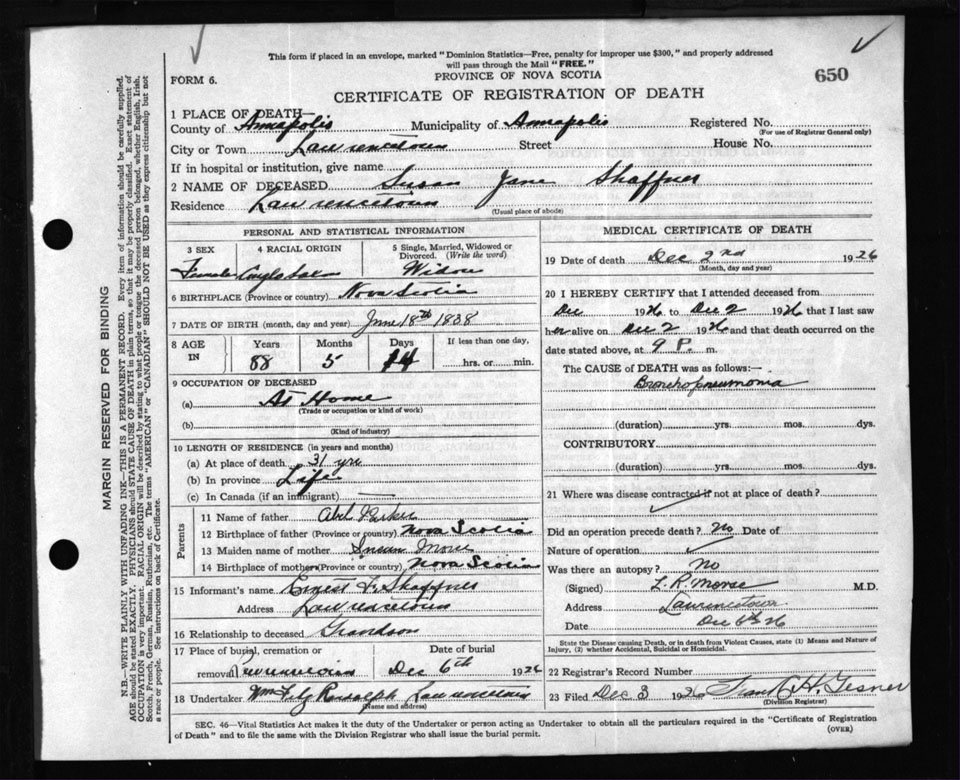 This form if placed in an envelope, marked "Dominion Statistics—Free, penalty for improper use $300," and properly addressed
will pass through the Mail "FREE."
FORM 6.
PROVINCE OF NOVA SCOTIA
650
CERTIFICATE OF REGISTRATION OF DEATH
1 PLACE OF DEATH—
County of Annapolis Municipality of Annapolis Registered No.
(For use of Registrar General only)
City or Town Lawrencetown Street House No.
If in hospital or institution, give name
2 NAME OF DECEASED Susan Jane Shaffner
Residence Lawrencetown
(Usual place of abode)
PERSONAL AND STATISTICAL INFORMATION
3 SEX 4 RACIAL ORIGIN 5 Single, Married, Widowed or
Divorced. (Write the word)
Female Anglo Saxon Widow
6 BIRTHPLACE (Province or country) Nova Scotia
7 DATE OF BIRTH (month, day and year) June 18th 1838
8 AGE Years Months Days If less than one day,
IN 88 5 14 hrs. or min.
9 OCCUPATION OF DECEASED
(a) At Home
(Trade or occupation or kind of work)
(b)
(Kind of industry)
10 LENGTH OF RESIDENCE (in years and months)
(a) At place of death 31 yrs
(b) In province Life
(c) In Canada (if an immigrant)
Parents
11 Name of father Abel Parker
12 Birthplace of father (Province or country) Nova Scotia
13 Maiden name of mother Morse
14 Birthplace of mother (Province or country) Nova Scotia
15 Informant's name Ernest Shaffner
Address Lawrencetown
16 Relationship to deceased Grandson
17 Place of burial, cremation or Date of burial
removal Lawrencetown Dec 6th 1926
18 Undertaker Wm Fitz Randolph Lawrencetown
(Name and address)
MEDICAL CERTIFICATE OF DEATH
19 Date of death Dec 2nd 1926
(Month, day and year)
20 I HEREBY CERTIFY that I attended deceased from
Dec 1926 to Dec 2 1926 that I last saw
her alive on Dec 2 1926 and that death occurred on the
date stated above, at 9 P. m.
The CAUSE of DEATH was as follows:—
Bronchopneumonia
(duration) yrs. mos. dys.
CONTRIBUTORY
(duration) yrs. mos. dys.
21 Where was disease contracted if not at place of death?
Did an operation precede death? No Date of
Nature of operation
Was there an autopsy? No
(Signed) L. R. Morse M.D.
Address Lawrencetown
Date Dec 6th 26
State the Disease causing Death, or in death from Violent Causes, state (1) Means and Nature of
Injury, (2) whether Accidental, Suicidal or Homicidal.
22 Registrar's Record Number
23 Filed Dec 3 1926 Frank H. Gesner
(Division Registrar)
SEC. 46—Vital Statistics Act makes it the duty of the Undertaker or person acting as Undertaker to obtain all the particulars required in the "Certificate of Registration
of Death" and to file the same with the Division Registrar who shall issue the burial permit.
(OVER)
MARGIN RESERVED FOR BINDING
N.B.—WRITE PLAINLY WITH UNFADING INK—THIS IS A PERMANENT RECORD. Every item of information should be carefully supplied.
AGE should be stated EXACTLY. PHYSICIANS should STATE CAUSE OF DEATH in plain terms, so that it may be properly classified. Exact statement of
OCCUPATION is very important. RACIAL ORIGIN will be described by stating to what people or tongue the deceased person belonged, whether English, Irish,
Scotch, French, German, Russian, Ruthenian, etc. The terms "AMERICAN" or "CANADIAN" SHOULD NOT BE USED as they express citizenship but not
a race or people. See instructions on back of Certificate.